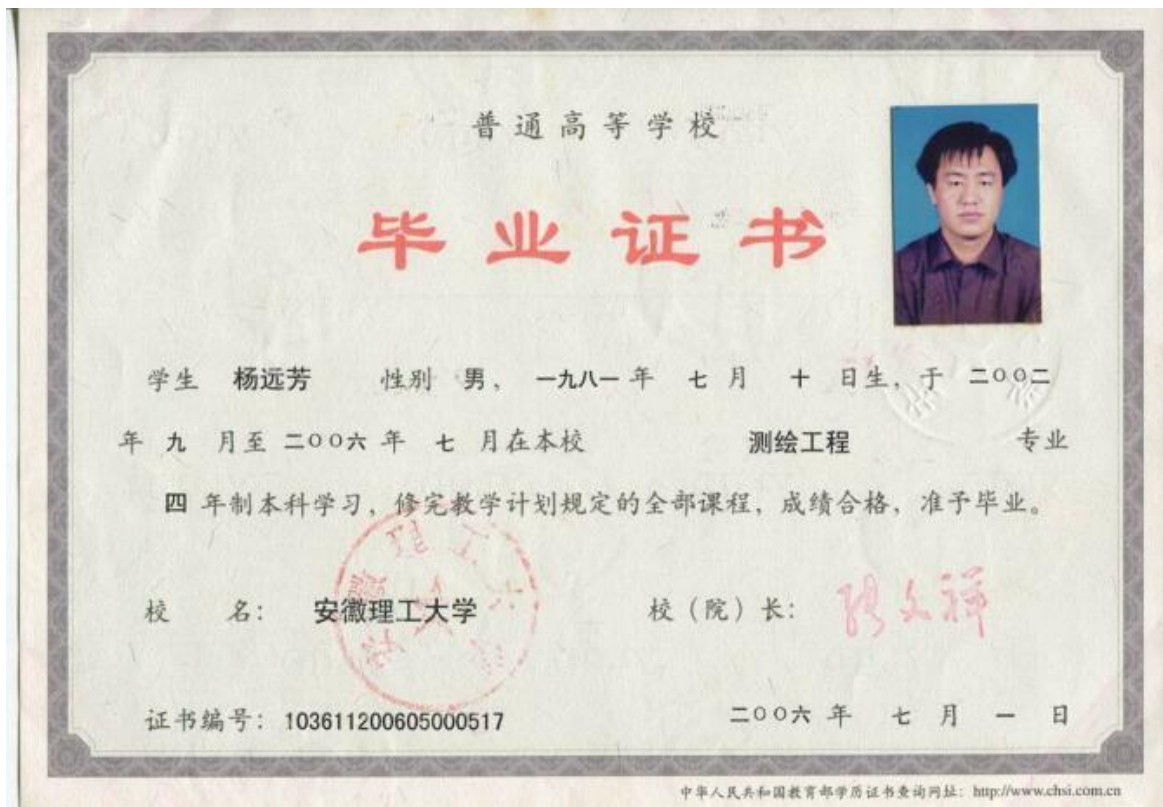 普通高等学校
毕业证书
学生 杨远芳 性别 男, 一九八一年 七 月 十 日生, 于 二〇〇二
年 九 月至 二〇〇六 年 七 月在本校 测绘工程 专业
四 年制本科学习, 修完教学计划规定的全部课程, 成绩合格, 准予毕业。
校 名: 安徽理工大学 校(院)长:
证书编号: 103611200605000517 二〇〇六 年 七 月 一 日
中华人民共和国教育部学历证书查询网址: http://www.chsi.com.cn